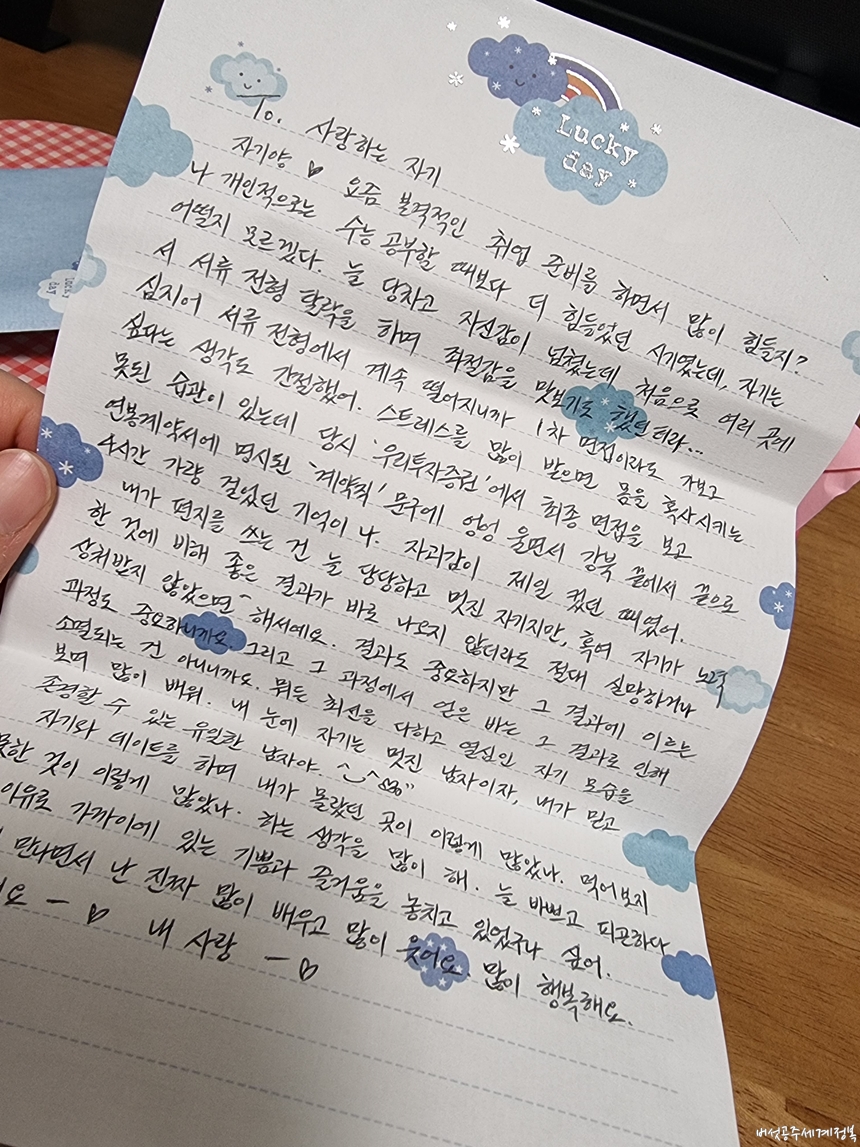 Lucky
day
To. 사랑하는 자기
자기양 ♡ 요즘 본격적인 취업 준비를 하면서 많이 힘들지?
나 개인적으로는 수능 공부할 때보다 더 힘들었던 시기였는데, 자기는
어떨지 모르겠다. 늘 당차고 자신감이 넘쳤는데 처음으로 여러 곳에
서 서류 전형 탈락을 하며 좌절감을 맛보기도 했던 터라...
심지어 서류 전형에서 계속 떨어지니까 1차 면접이라도 가보고
싶다는 생각도 간절했어. 스트레스를 많이 받으면 몸을 혹사시키는
못된 습관이 있는데 당시 '우리투자증권'에서 최종 면접을 보고
연봉계약서에 명시된 '계약직' 문구에 엉엉 울면서 강북 끝에서 끝으로
4시간 가량 걸었던 기억이 나. 자괴감이 제일 컸던 때였어.
내가 편지를 쓰는 건 늘 당당하고 멋진 자기지만, 혹여 자기가 노력
한 것에 비해 좋은 결과가 바로 나오지 않더라도 절대 실망하거나
상처받지 않았으면 해서예요. 결과도 중요하지만 그 결과에 이르는
과정도 중요하니까요. 그리고 그 과정에서 얻은 바는 그 결과로 인해
소멸되는 건 아니니까요. 뭐든 최선을 다하고 열심인 자기 모습을
보며 많이 배워. 내 눈에 자기는 멋진 남자이자, 내가 믿고
존경할 수 있는 유일한 남자야. ^_^
자기와 데이트를 하며 내가 몰랐던 곳이 이렇게 많았나. 먹어보지
못한 것이 이렇게 많았나. 하는 생각을 많이 해. 늘 바쁘고 피곤하다
이유로 가까이에 있는 기쁨과 즐거움을 놓치고 있었구나 싶어.
만나면서 난 진짜 많이 배우고 많이 웃어요. 많이 행복해요.
요 - ♡ 내 사랑 - ♡
Lucky
day
버섯공주세계정복